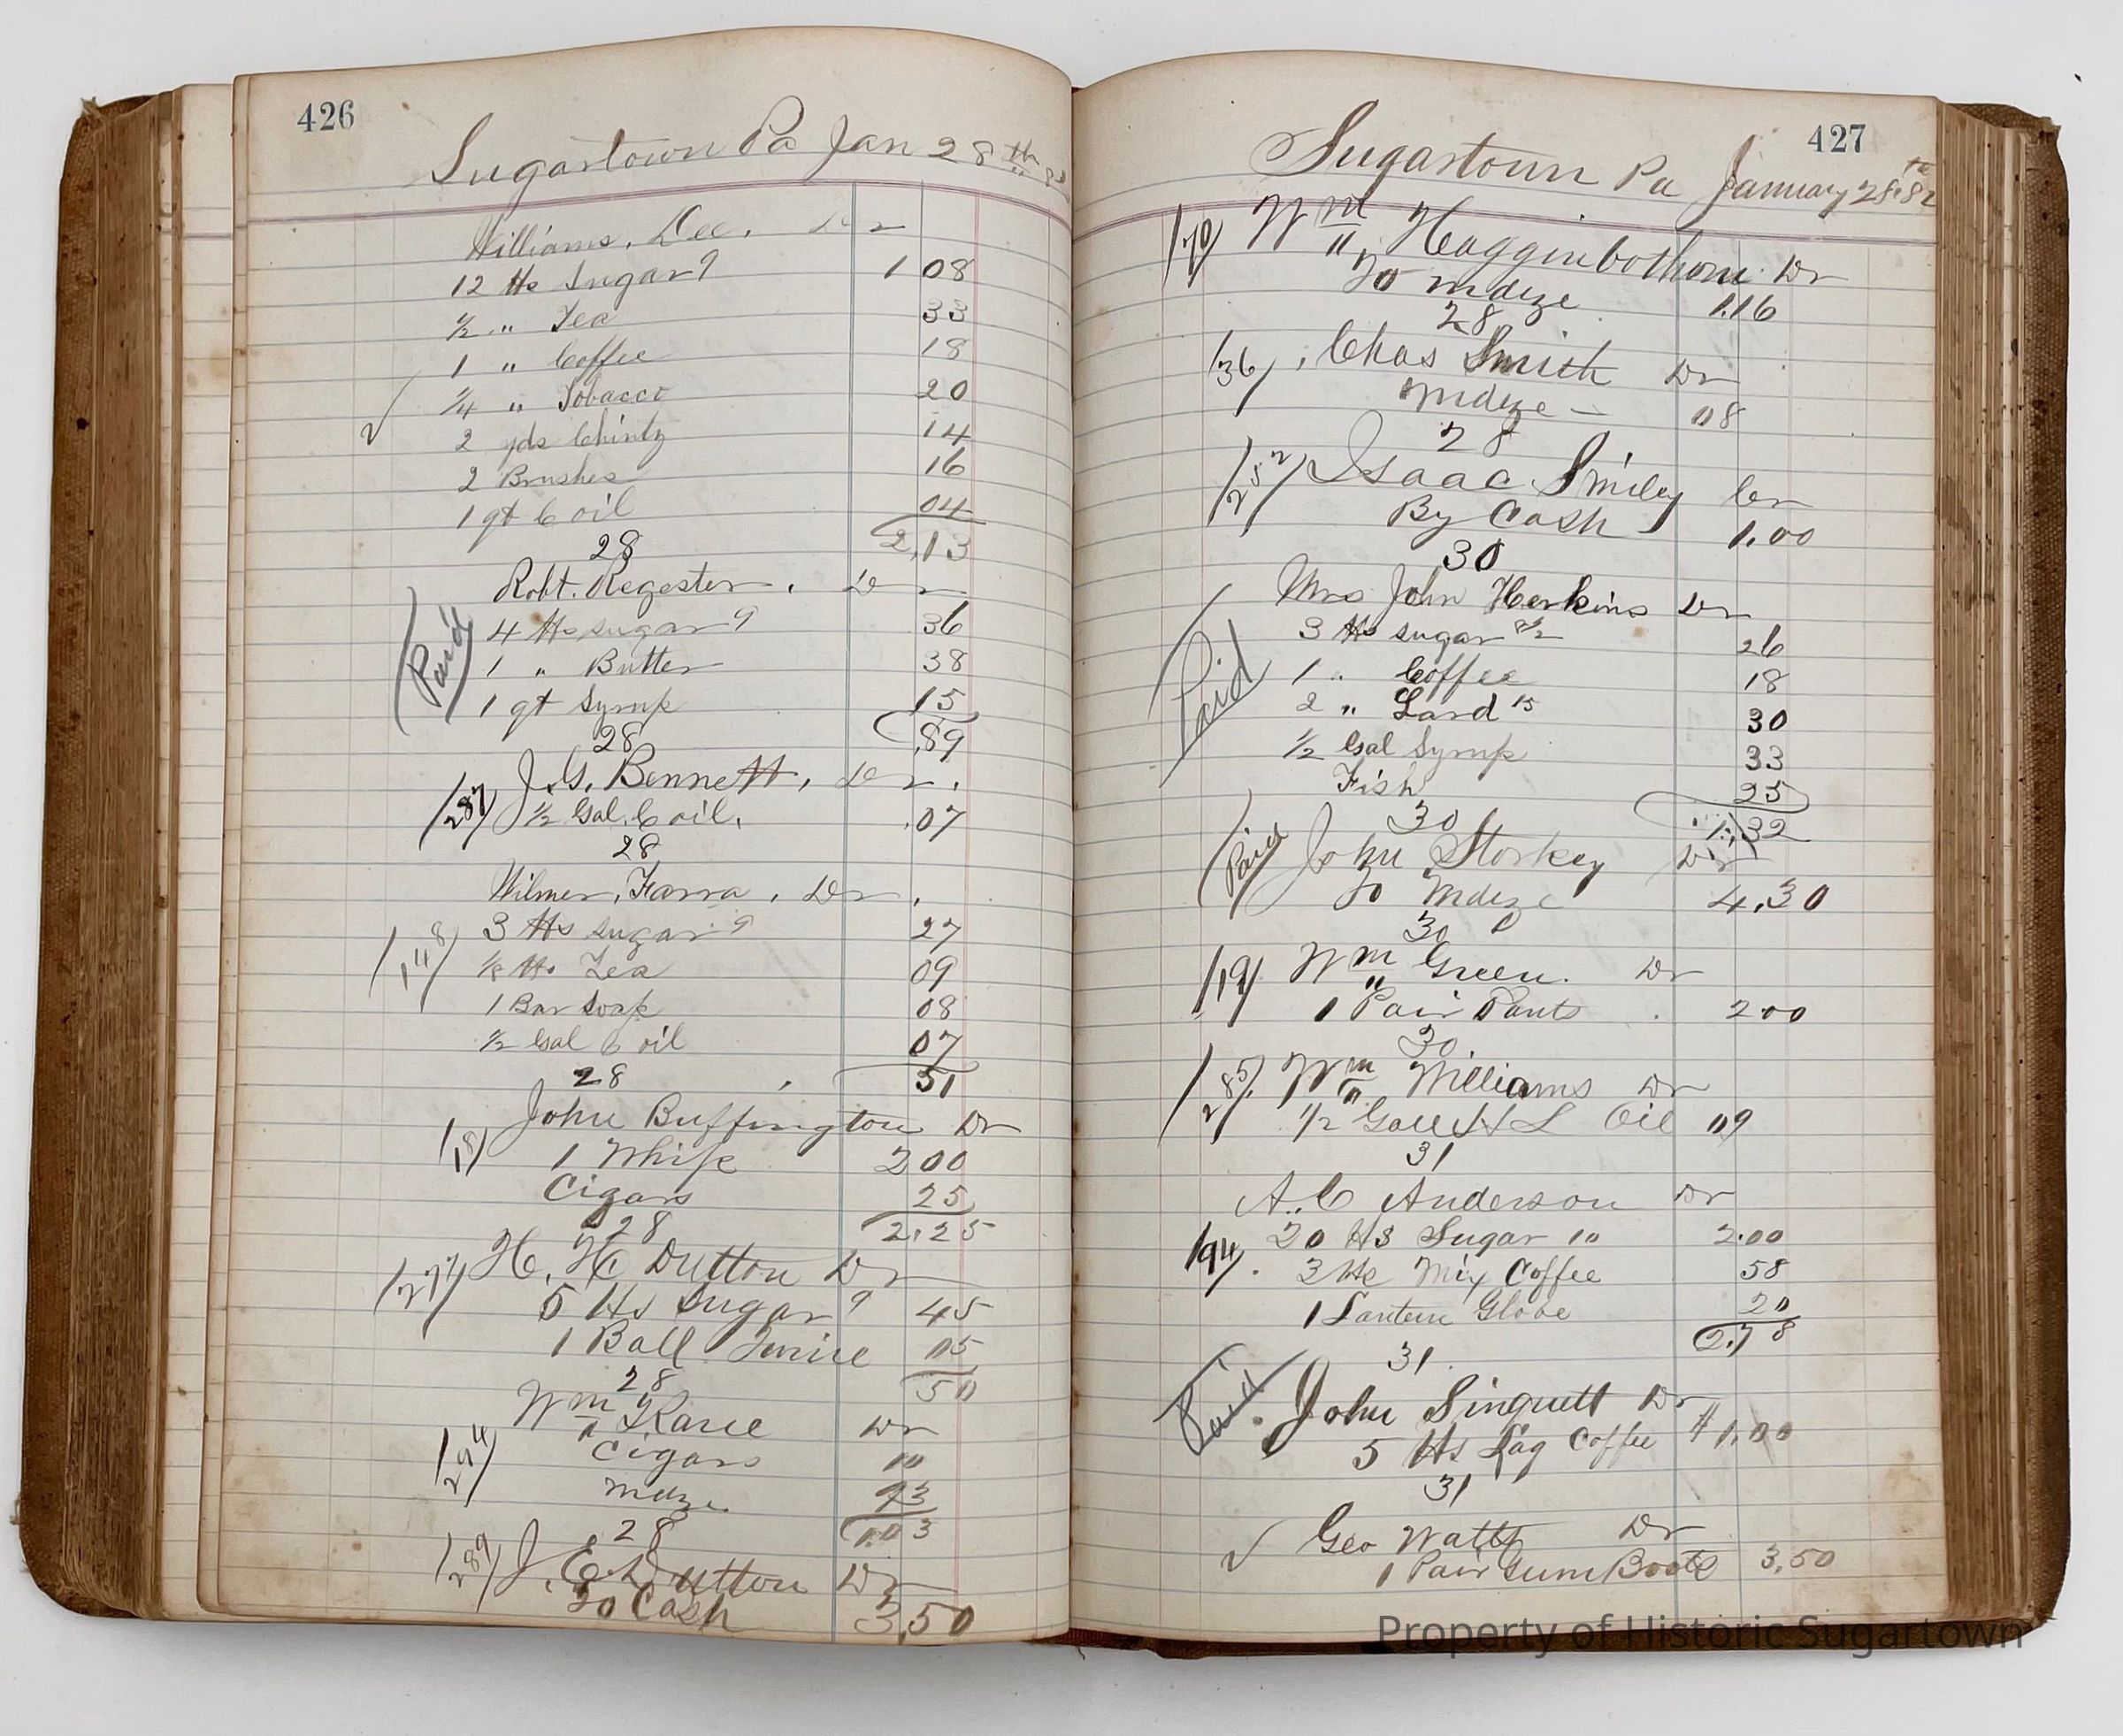 426
Sugartown Pa Jan 28th
Williams, Lee, Dr
12 lbs Sugar 9 1 08
½ " Tea 33
1 " Coffee 18
¼ " Tobacco 20
2 yds Chintz 14
2 Brushes 16
1 qt C oil 04
2,13
28
Robt. Regester, Dr
Paid
4 lbs sugar 9 36
1 " Butter 38
1 qt Syrup 15
.89
28
J. G. Bennett, Dr.
287 ½ Gal. C oil. .07
28
Wilmer, Farra, Dr.
3 lbs sugar 9 27
148 ⅛ lb Tea 09
1 Bar Soap 08
½ Gal C oil 07
51
28
John Buffington Dr
18 1 Whip 200
Cigars 25
2.25
28
277 H. H. Dutton Dr
5 lbs Sugar 9 45
1 Ball Twine 05
50
28
Wm Kane Dr
294 Cigars 10
Mdze. 93
1.03
28
289 J. E. Dutton Dr
To Cash 3,50
427
Sugartown Pa January 28th 82
170 Wm Hagginbothom Dr
To mdze 1.16
28
136 Chas Smith Dr
Mdze — 08
28
252 Isaac Smiley Cr
By Cash 1.00
30
Mrs John Herkins Dr
Paid
3 lbs sugar 8½ 26
1 " Coffee 18
2 " Lard 15 30
½ Gal Syrup 33
Fish 25
1.32
30
Paid John Storkey Dr
To Mdze 4,30
30
119 Wm Green. Dr
1 Pair Pants 200
30
285 Wm Williams Dr
½ Gall H L Oil 09
31
A. C Anderson Dr
194. 20 lbs Sugar 10 2.00
3 lbs Mix Coffee 58
1 Lantern Globe 20
2.78
31
Paid John Singuett Dr
5 lbs Lag Coffee $1.00
31
Geo Watts Dr
1 Pair Gum Boots 3.50
Property of Historic Sugartown